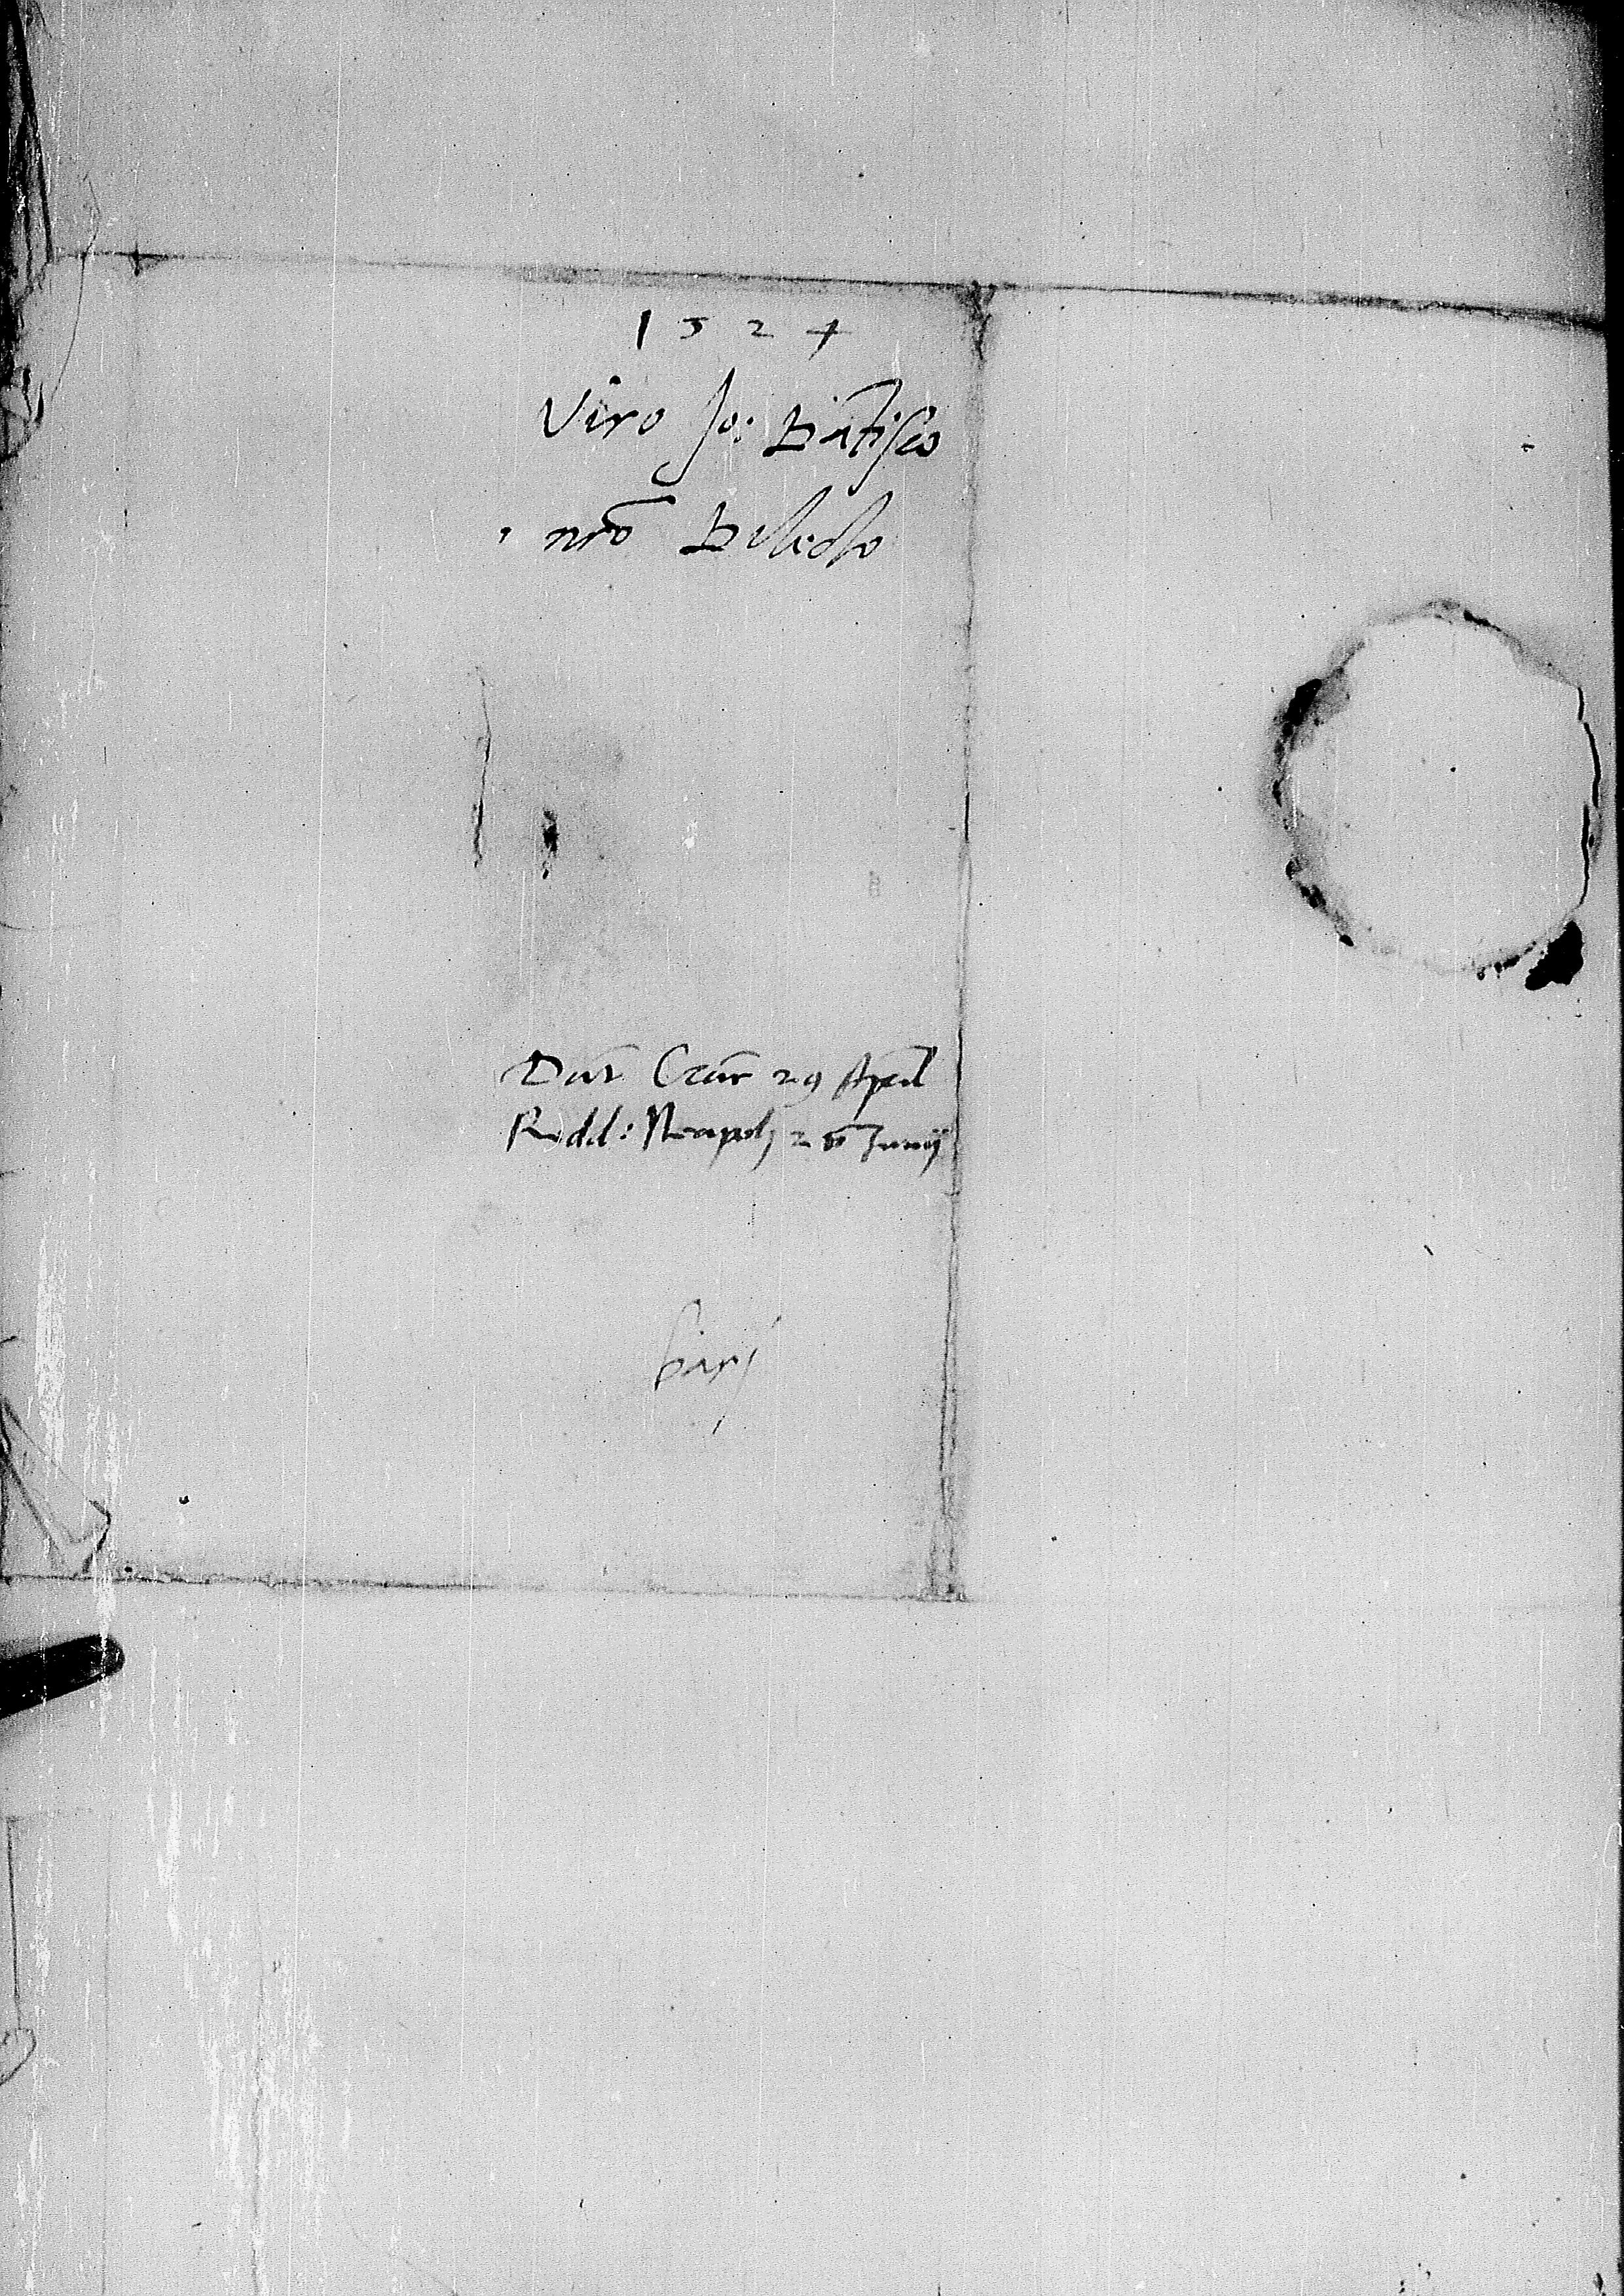 1524
Viro Jo: Batista
nro Dilecto
Dat Czar 29 April
Redd: Neapoli 26 Junij
Barj